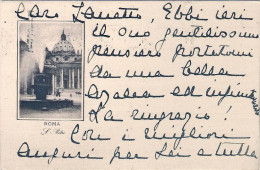 Caro Zanotto, Ebbi ieri
il suo gentilissimo
pensiero portatomi
da una bella
azalea ed infinite
La ringrazio!
Con i migliori
auguri per Lei e tutta
ROMA
S. Pietro